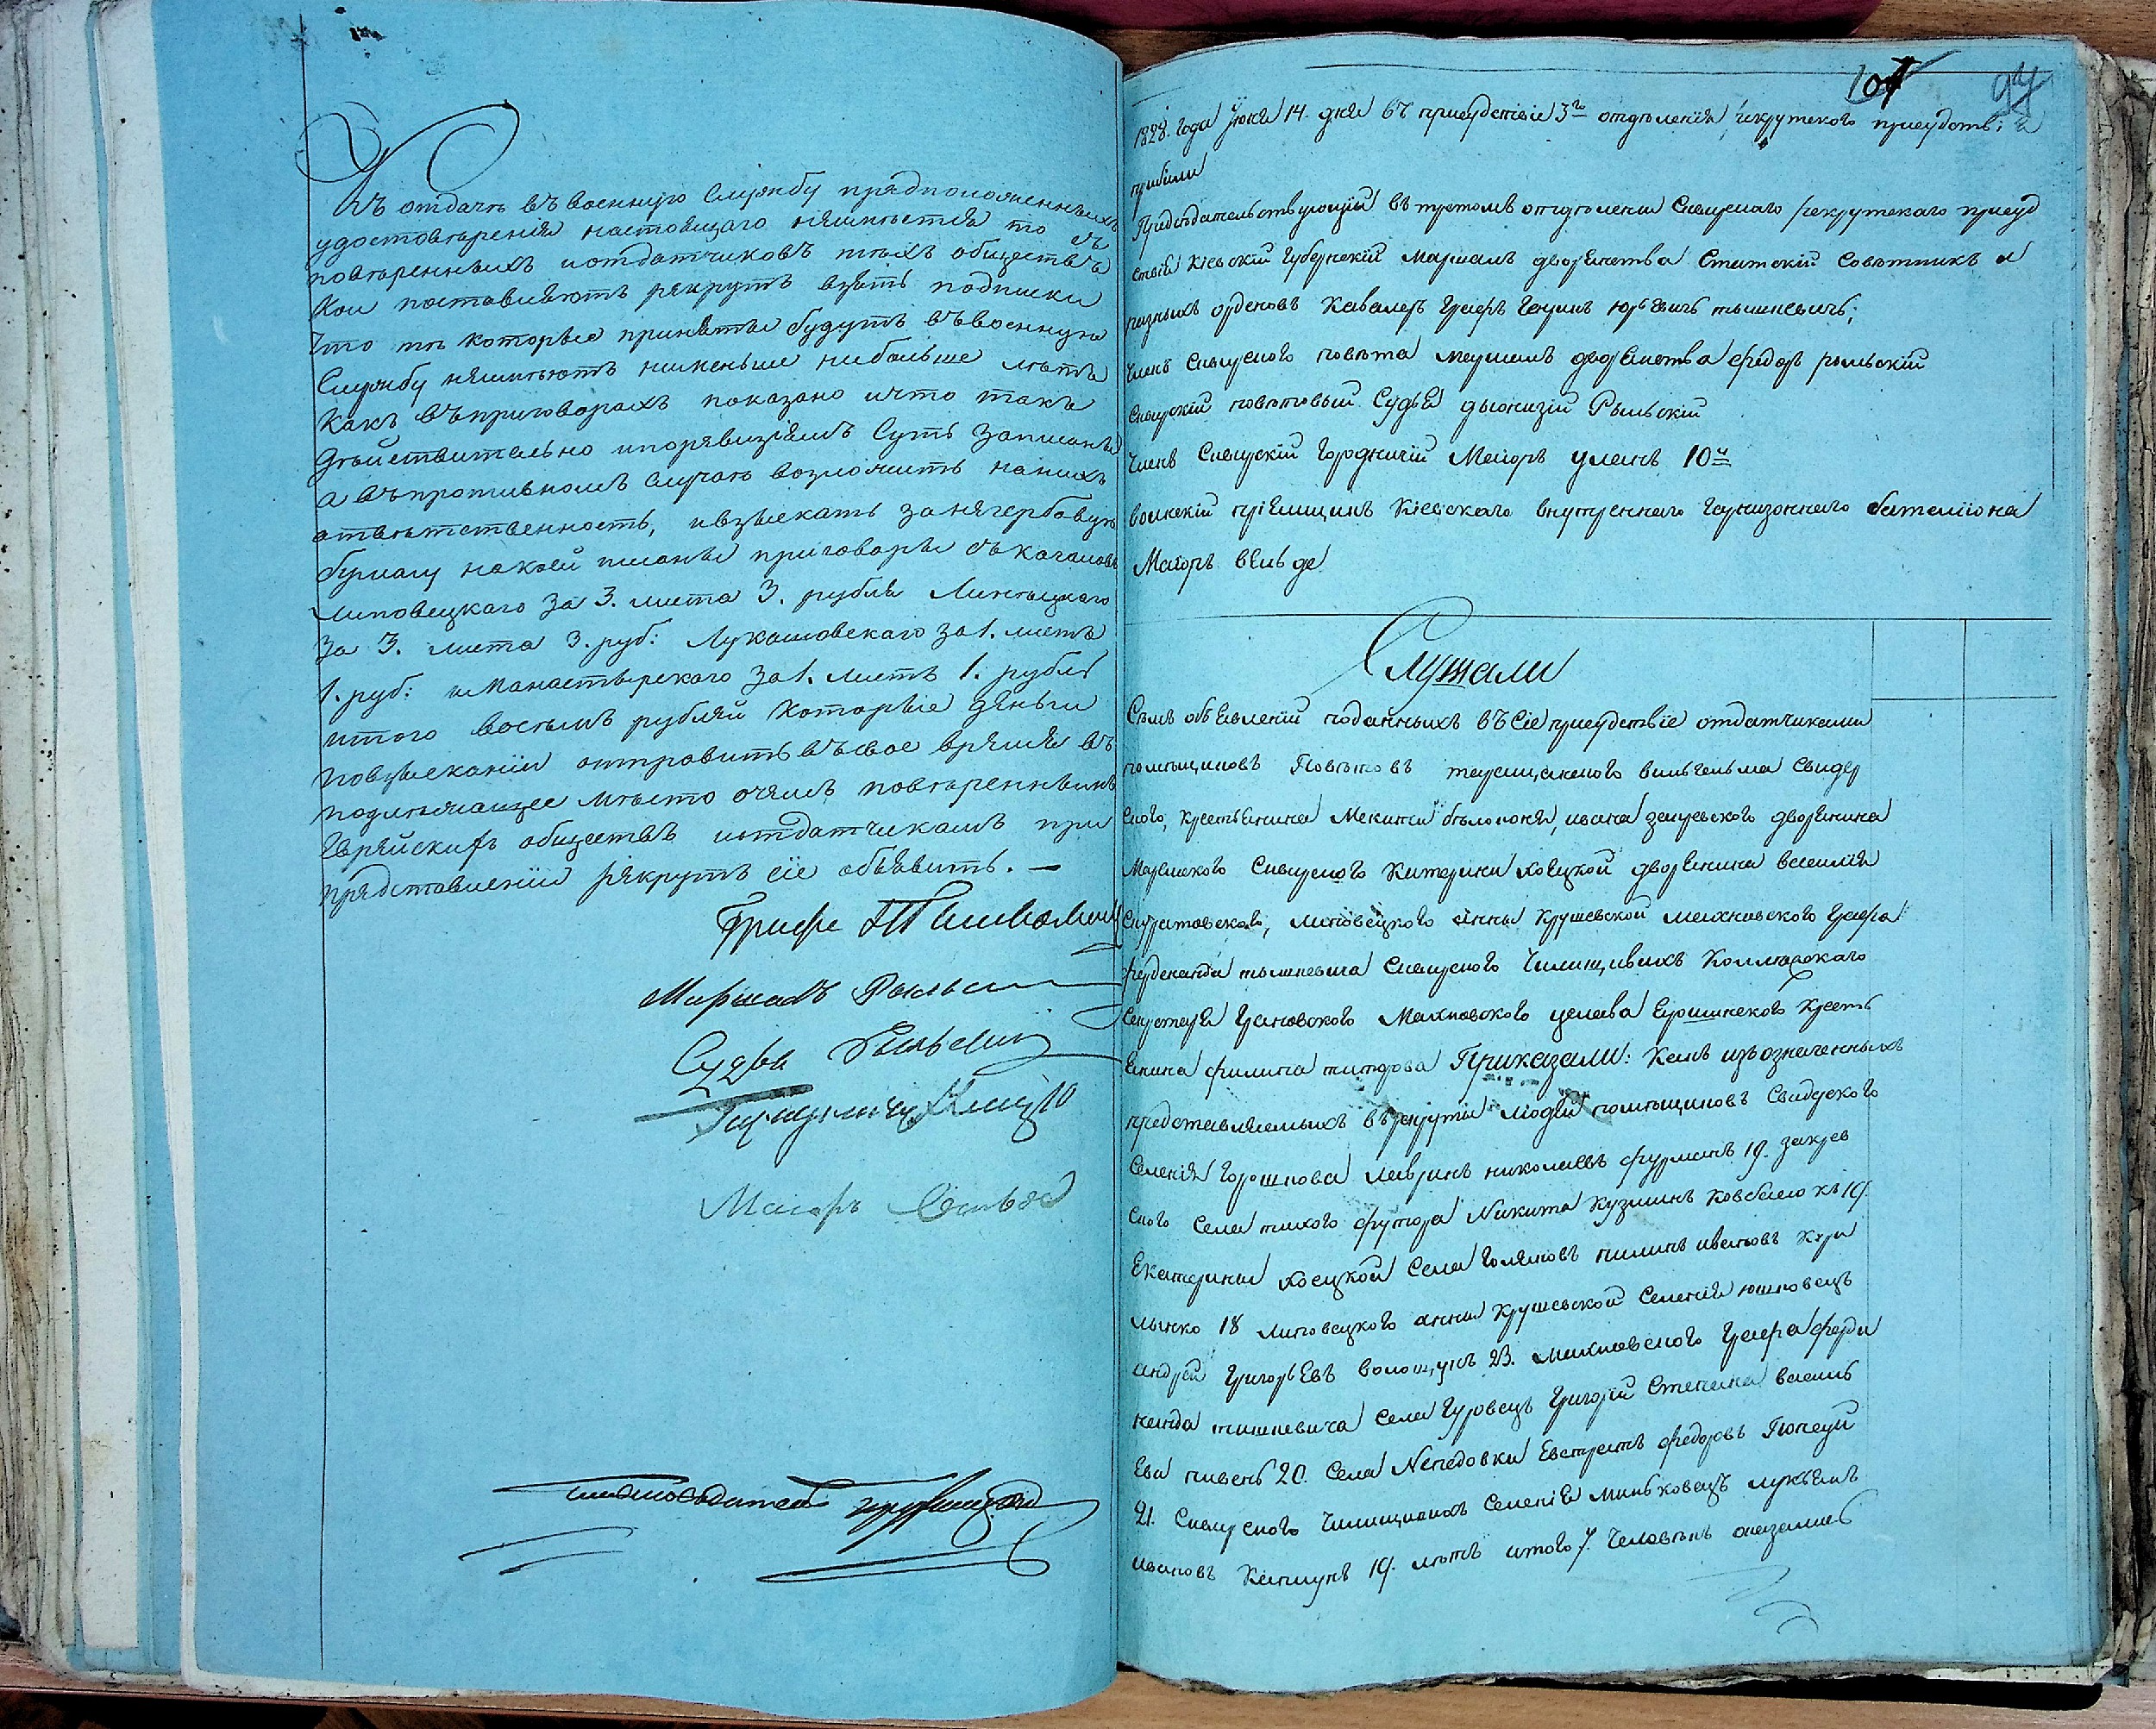 къ отдачѣ въ военную Службу предположенныхъ
удостовѣренія настоящаго неимѣется то съ
повѣренныхъ и отдатчиковъ тѣхъ обществъ
Кои поставляютъ рекрутъ взять подписки
что тѣ которые приняты будутъ въ военную
Службу неимѣютъ нименьше нибольше лѣтъ
какъ въ приговорахъ показано и что такъ
дѣйствительно и по ревизіямъ Суть записаны
а въ противномъ случаѣ возложить на нихъ
отвѣтственность, и взыскать за негербовую
бумагу на коей писаны приговоры съ кагаловъ
Липовецкаго за 3. листа 3. рубля Линецкаго
за 3. листа 3. руб: Лукашовскаго за 1. листъ
1. руб: и Манастырскаго за 1. листъ 1. рубль
итого восемь рублей которые деньги
повзысканіи отправить въ свое время въ
подлежащее мѣсто очемъ повѣреннымъ
Еврейскихъ обществъ и отдатчикамъ при
представленіи рекрутъ сіе объявить. —
Графъ Тышкевичъ
Маршалъ Рыльскій
Судья Рыльскій
Маіоръ Вельде
104 97
1828. года Іюня 14. дня въ присудствіе 3го отдѣленія рекрутскаго присудствія
прибыли
Предсѣдательствующій въ третомъ отдѣлени Сквирскаго рекрутскаго присуд
ствія Кіевскій Губернскій Маршалъ дворянства Статскій Совѣтникъ и
разныхъ орденовъ Кавалеръ Графъ Генрикъ Юрьевичъ тышкевичъ;
Членъ Сквирского повѣта маршалъ дворянства федоръ рыльскій
Сквирскій повѣтовый Судья діонизій Рыльскій
Членъ Сквирскій Городничій Маіоръ уланъ 10й
воинскій пріемщикъ Кіевскаго внутреннаго гарнизоннаго баталіона
Маіоръ вельде
Слушали
Семь объявленій поданныхъ въ Сіе присудствіе отдатчиками
помѣщиковъ Повѣтовъ таращанского вильгельма Свидер
ского, крестьянина Микиты бѣлоконя, ивана закревского дворянина
Сквирского Катерини хоецкой дворянина василія
липовецкого анны Крушевской махновского Графа
фердинанда тышкевича Сквирского Коллежского
Секретаря Махновского крестъ
янина филипа титорова Приказали: Какъ изъ означенныхъ
представляемыхъ въ рекруты людей помѣщиковъ Свидерского
Селенія Горошкова Лаврикъ николаевъ фурманъ 19. закрев
ского Села тихого футора Никита Кузминъ 19.
Екатерины хоецкой Села пилипъ ивановъ
18 Липовецкого анны Крушевской Селенія юшковецъ
андрей Григорьевъ волощукъ 23. Махновского Графа Ферди
нанда тишкевича Села Гуровецъ Григорій Степана
пивень 20. Села Непедовки Евстратъ федоровъ
21. Сквирского Селенія миньковецъ лукьянъ
ивановъ 19. лѣтъ итого 7. Человѣкъ оказались